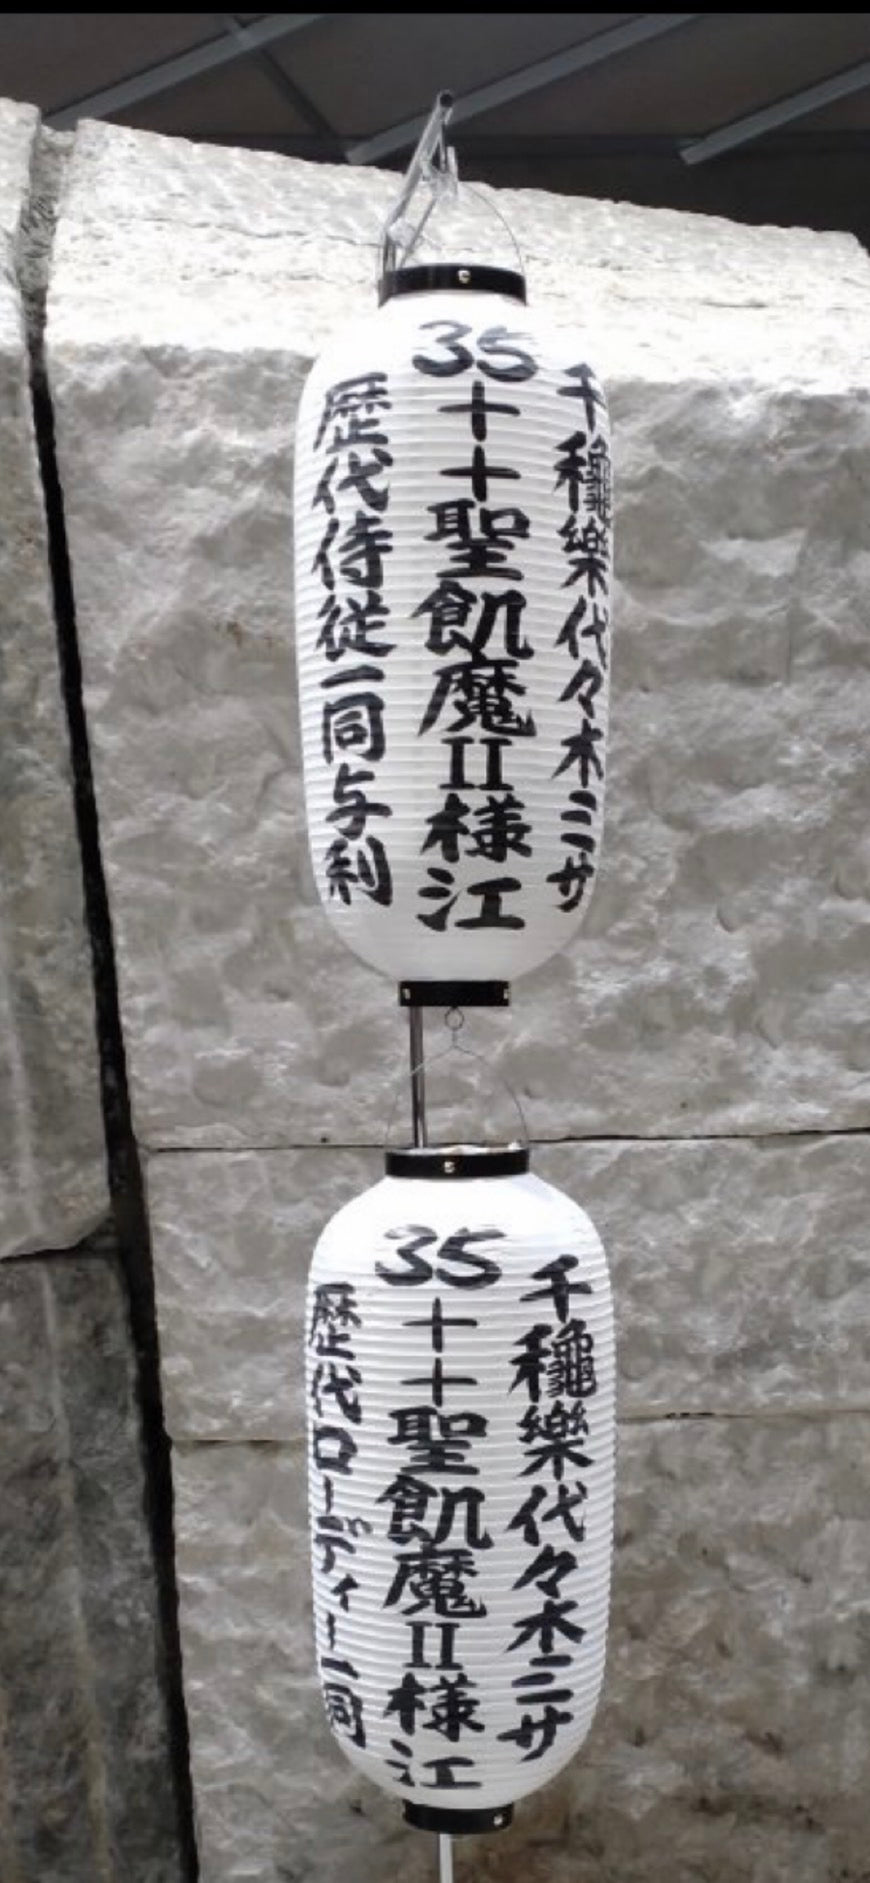 千穐樂代々木ミサ
35++聖飢魔II様江
歴代侍従一同与利
千穐樂代々木ミサ
35++聖飢魔II様江
歴代ローディー一同